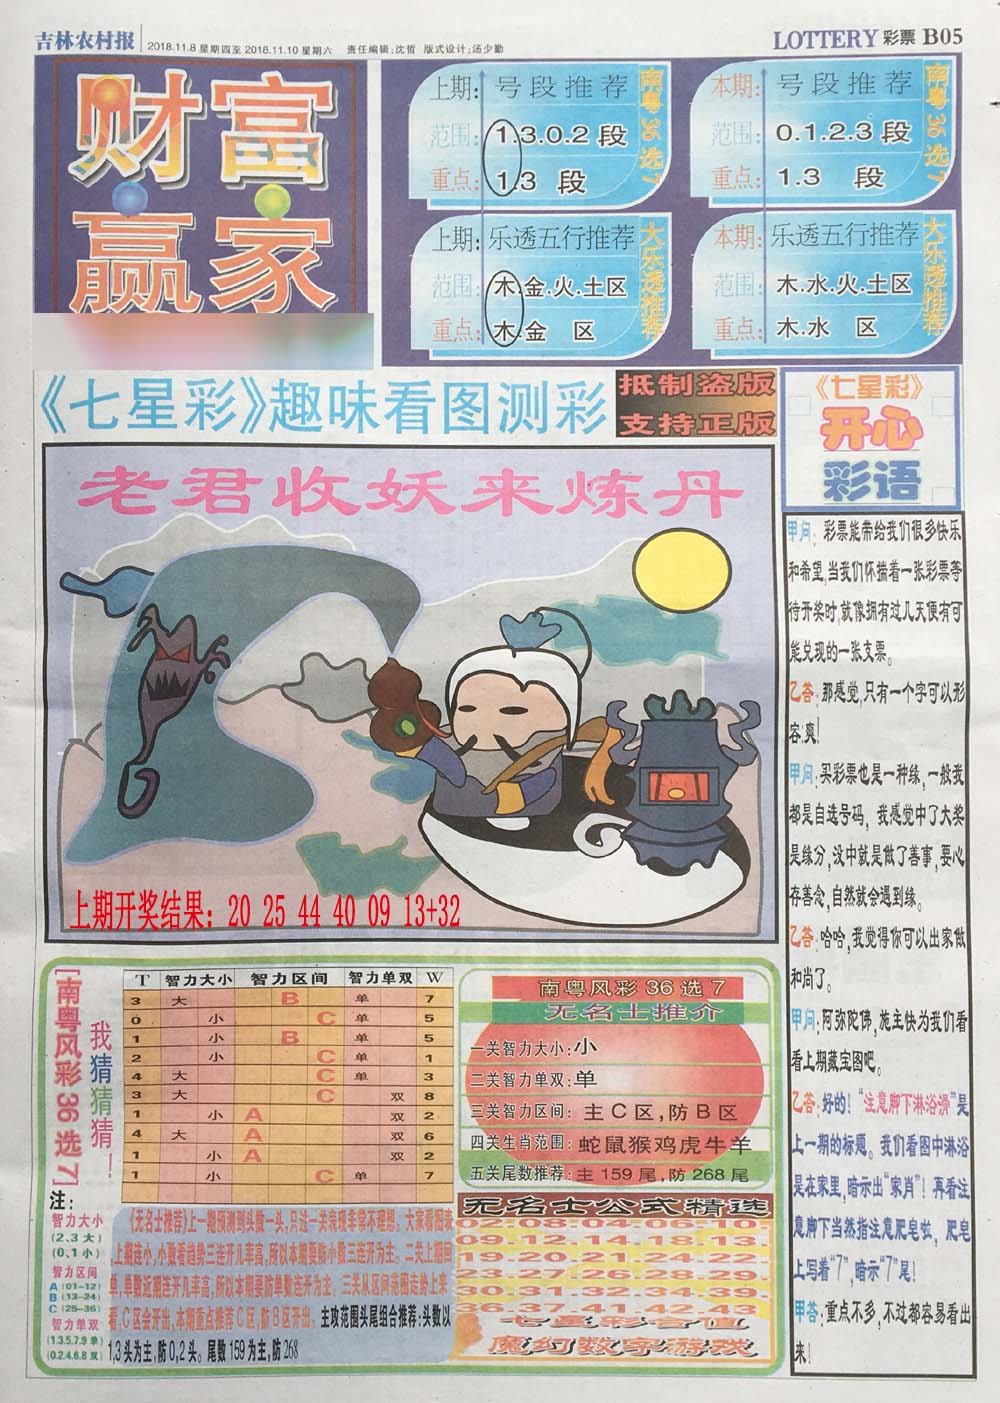 吉林农村报
2018.11.8 星期四至 2018.11.10 星期六 责任编辑:沈哲 版式设计:汤少勤
LOTTERY 彩票 B05
财富
赢家
上期: 号段推荐
范围: 1.3.0.2 段
重点: 1.3 段
南粤36选7
本期: 号段推荐
范围: 0.1.2.3 段
重点: 1.3 段
南粤36选7
上期: 乐透五行推荐
范围: 木.金.火.土区
重点: 木.金 区
大乐透推荐
本期: 乐透五行推荐
范围: 木.水.火.土区
重点: 木.水 区
大乐透推荐
《七星彩》趣味看图测彩
抵制盗版
支持正版
老君收妖来炼丹
上期开奖结果: 20 25 44 40 09 13+32
《七星彩》
开心
彩语
甲问: 彩票能带给我们很多快乐
和希望,当我们怀揣着一张彩票等
待开奖时,就像拥有过几天便有可
能兑现的一张支票。
乙答:那感觉,只有一个字可以形
容:爽!
甲问:买彩票也是一种缘,一般我
都是自选号码, 我感觉中了大奖
是缘分,没中就是做了善事,要心
存善念,自然就会遇到缘。
乙答:哈哈,我觉得你可以出家做
和尚了。
甲问:阿弥陀佛,施主快为我们看
看上期藏宝图吧。
乙答:好的!“注意脚下淋浴滑”是
上一期的标题。我们看图中淋浴
是在家里,暗示出“家肖”! 再看注
意脚下当然指注意肥皂啦, 肥皂
上写着“7”,暗示“7”尾!
甲答:重点不多,不过都容易看出
来!
[南粤风彩36选7]
我猜猜猜!
T 智力大小 智力区间 智力单双 W
3 大 B 单 7
0 小 C 单 5
1 小 B 单 5
2 小 C 单 1
4 大 C 单 3
3 大 C 双 8
1 小 A 双 2
4 大 A 双 6
1 小 A 双 2
1 小 C 单 7
注:
智力大小
(2.3 大)
(0.1 小)
智力区间
A (01-12)
B (13-24)
C (25-36)
智力单双
(1.3.5.7.9 单)
(0.2.4.6.8 双)
《无名士推荐》上一期预测到头数一头,只过一关表现非常不理想。大家看图表
,上期连小,小数看趋势三连开几率高,所以本期整断小数三连开为主。二关上期回
单,单数近期连开几率高,所以本期要防单数连开为主。三关从区间总图走势上来
看,C区会开出,本期重点推荐C区,防B区开出。主攻范围头尾组合推荐:头数以
1,3头为主,防0,2头。尾数159为主,防268
南粤风彩36选7
无名士推介
一关智力大小:小
二关智力单双:单
三关智力区间: 主C区,防B区
四关生肖范围: 蛇鼠猴鸡虎牛羊
五关尾数推荐:主 159 尾,防 268 尾
无名士公式精选
02-08-04-06-05-10-
09-12-14-18-13-
19-20-21-22-24-
23-27-26-28-29-
30-31-32-34-39-
36-37-41-42-43
七星彩合值
魔幻数字游戏